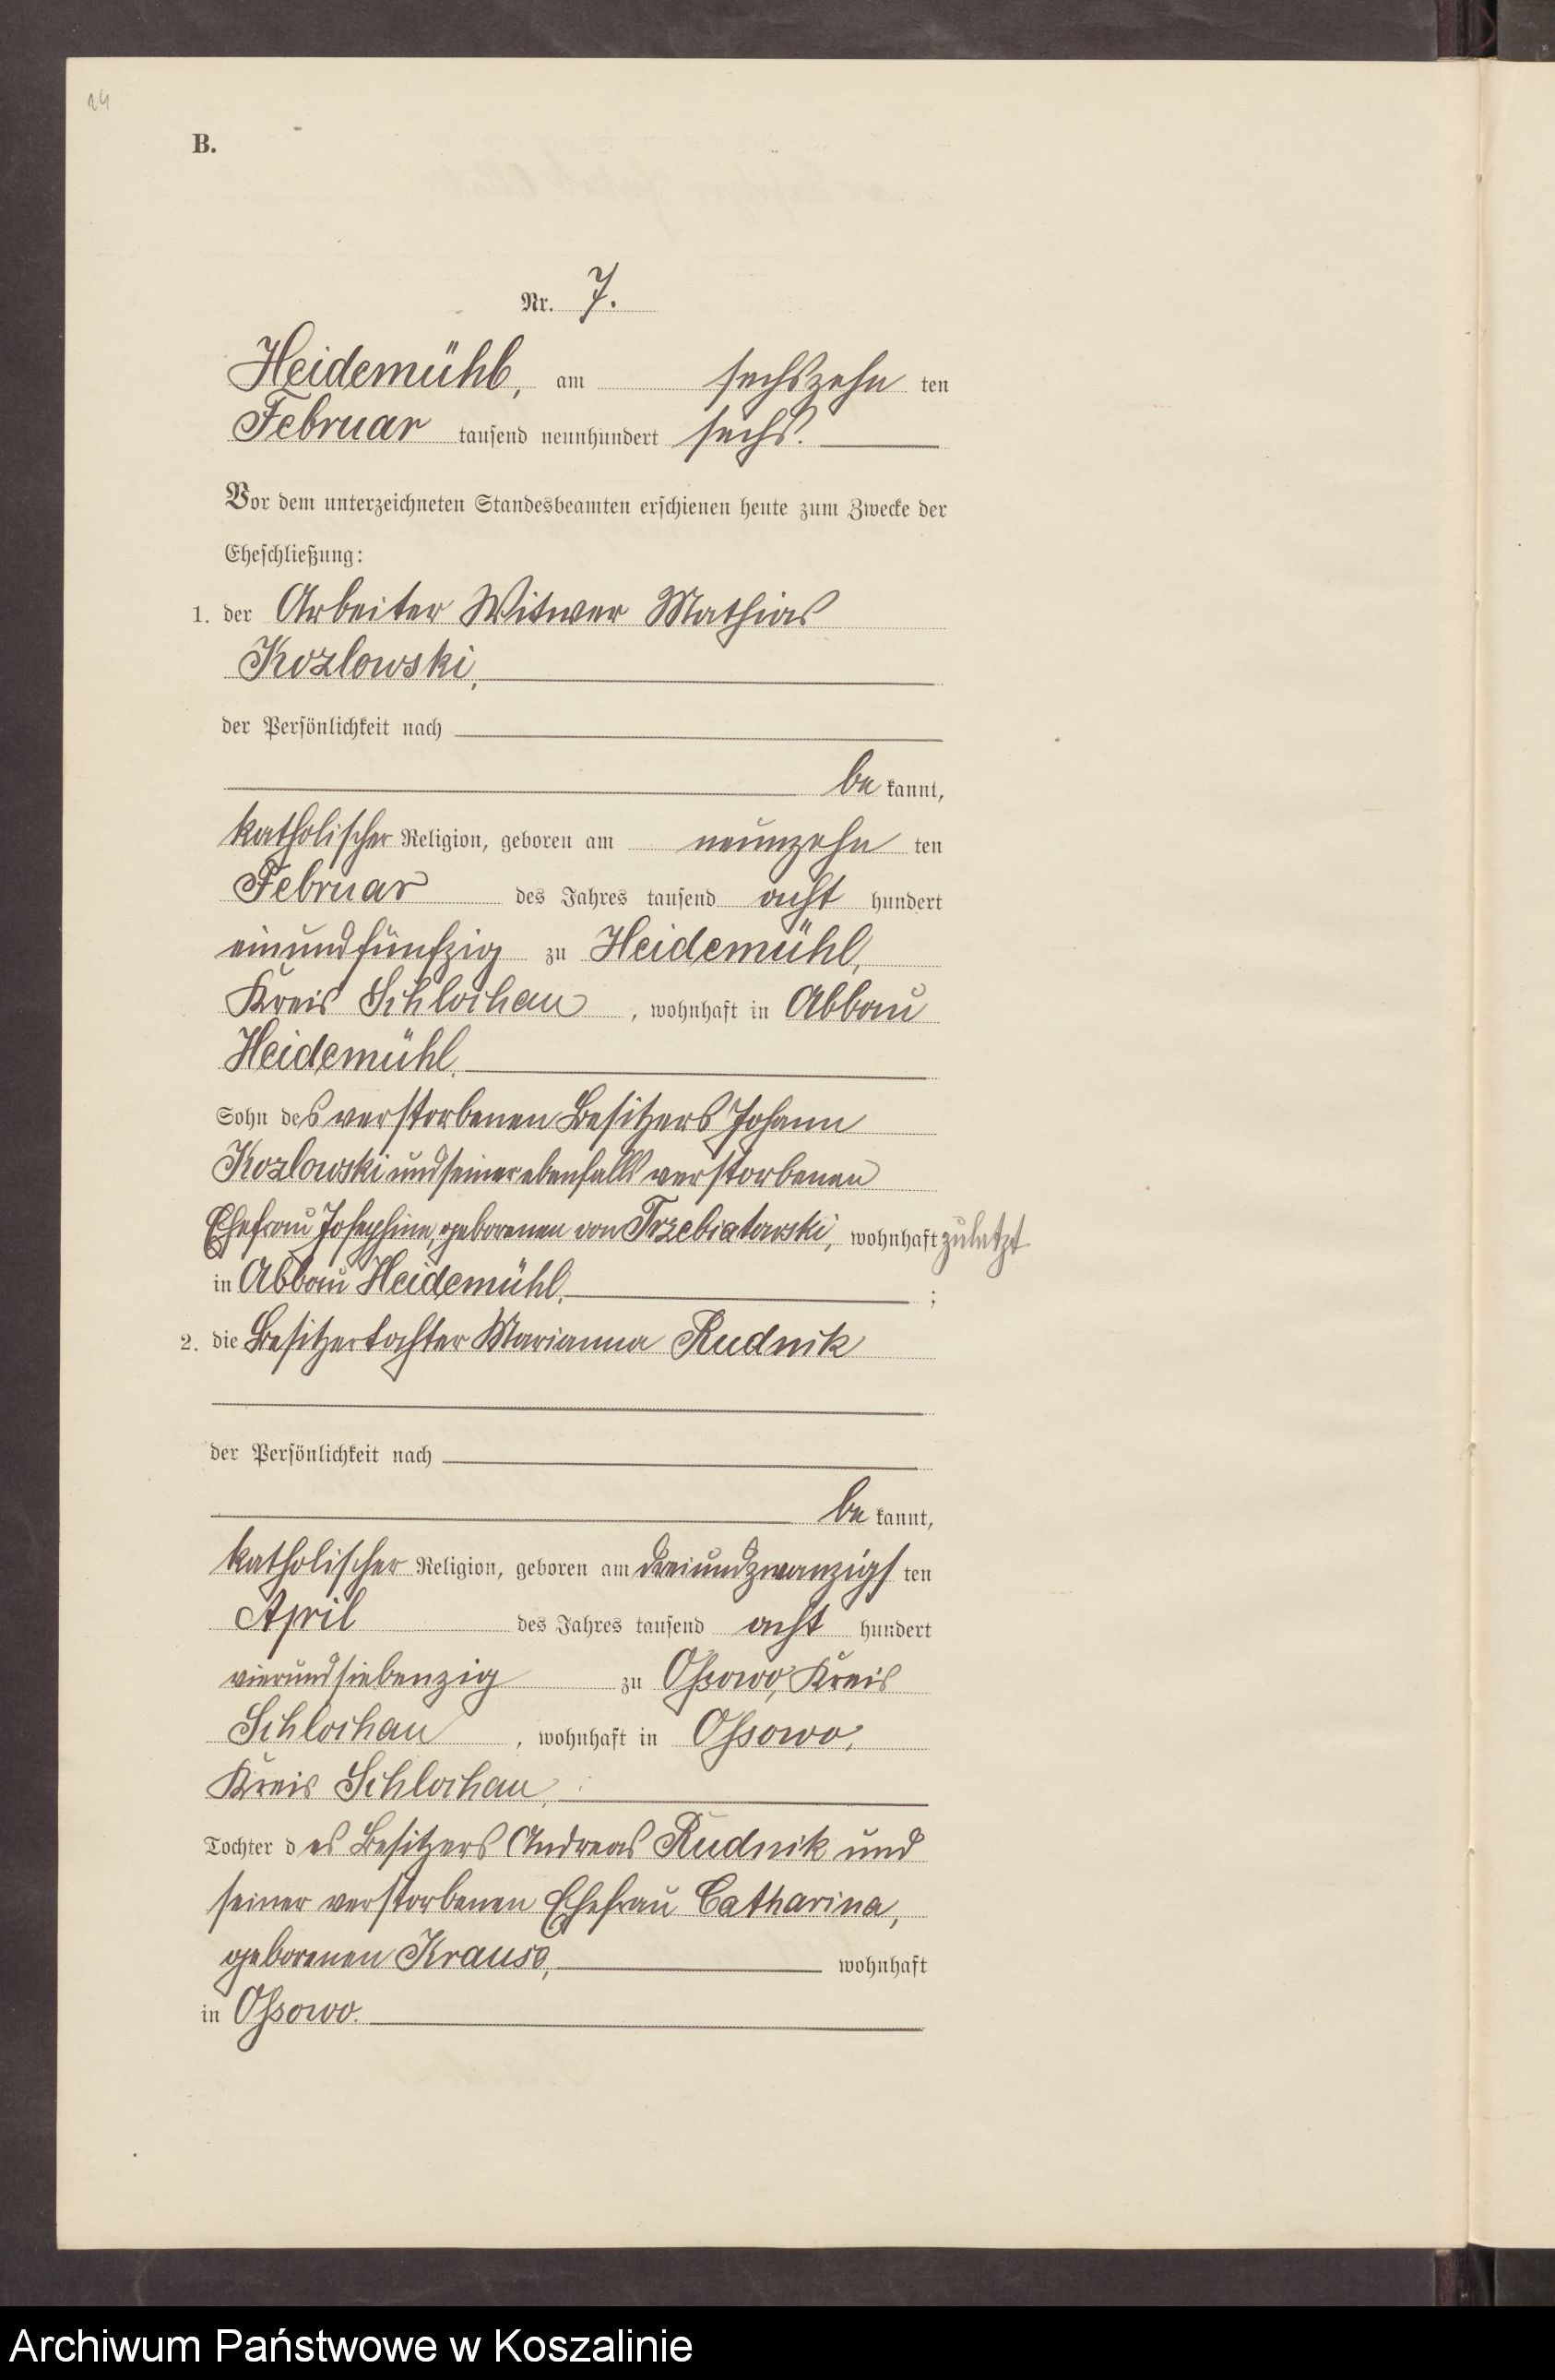 24
B.
Nr. 7.
Heidemühl, am sechszehn ten
Februar tausend neunhundert sechs.
Vor dem unterzeichneten Standesbeamten erschienen heute zum Zwecke der
Eheschließung:
1. der Arbeiter Witwer Mathias
Kozlowski,
der Persönlichkeit nach
be kannt,
katholischer Religion, geboren am neunzehn ten
Februar des Jahres tausend acht hundert
einundfünfzig zu Heidemühl,
Kreis Schlochau, wohnhaft in Abbau
Heidemühl,
Sohn des verstorbenen Besitzers Johann
Kozlowski und seiner ebenfalls verstorbenen
Ehefrau Josephine, geborenen von Trzebiatowski, wohnhaft zuletzt
in Abbau Heidemühl, ;
2. die Besitzertochter Marianna Rudnik
der Persönlichkeit nach
be kannt,
katholischer Religion, geboren am dreiundzwanzigs ten
April des Jahres tausend acht hundert
vierundsiebenzig zu Ossowo, Kreis
Schlochau, wohnhaft in Ossowo,
Kreis Schlochau,
Tochter des Besitzers Andreas Rudnik und
seiner verstorbenen Ehefrau Catharina,
geborenen Krause, wohnhaft
in Ossowo.
Archiwum Państwowe w Koszalinie